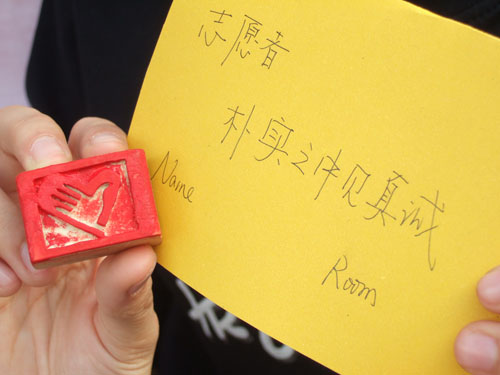 志愿者
朴实之中见真诚
Name
Room